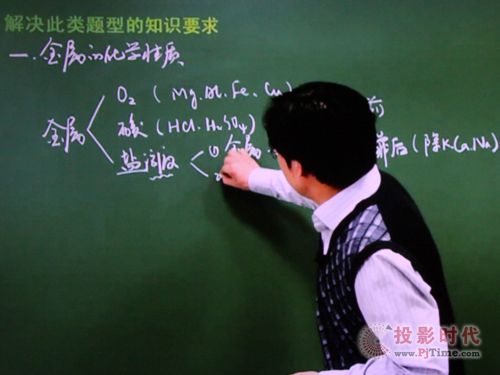 解决此类题型的知识要求
一.金属的化学性质
金属
O₂ (Mg.Al.Fe.Cu)
酸(HCl.H₂SO₄) 前
盐溶液 ①金属 后(除K Ca Na)
投影时代
www.PjTime.com